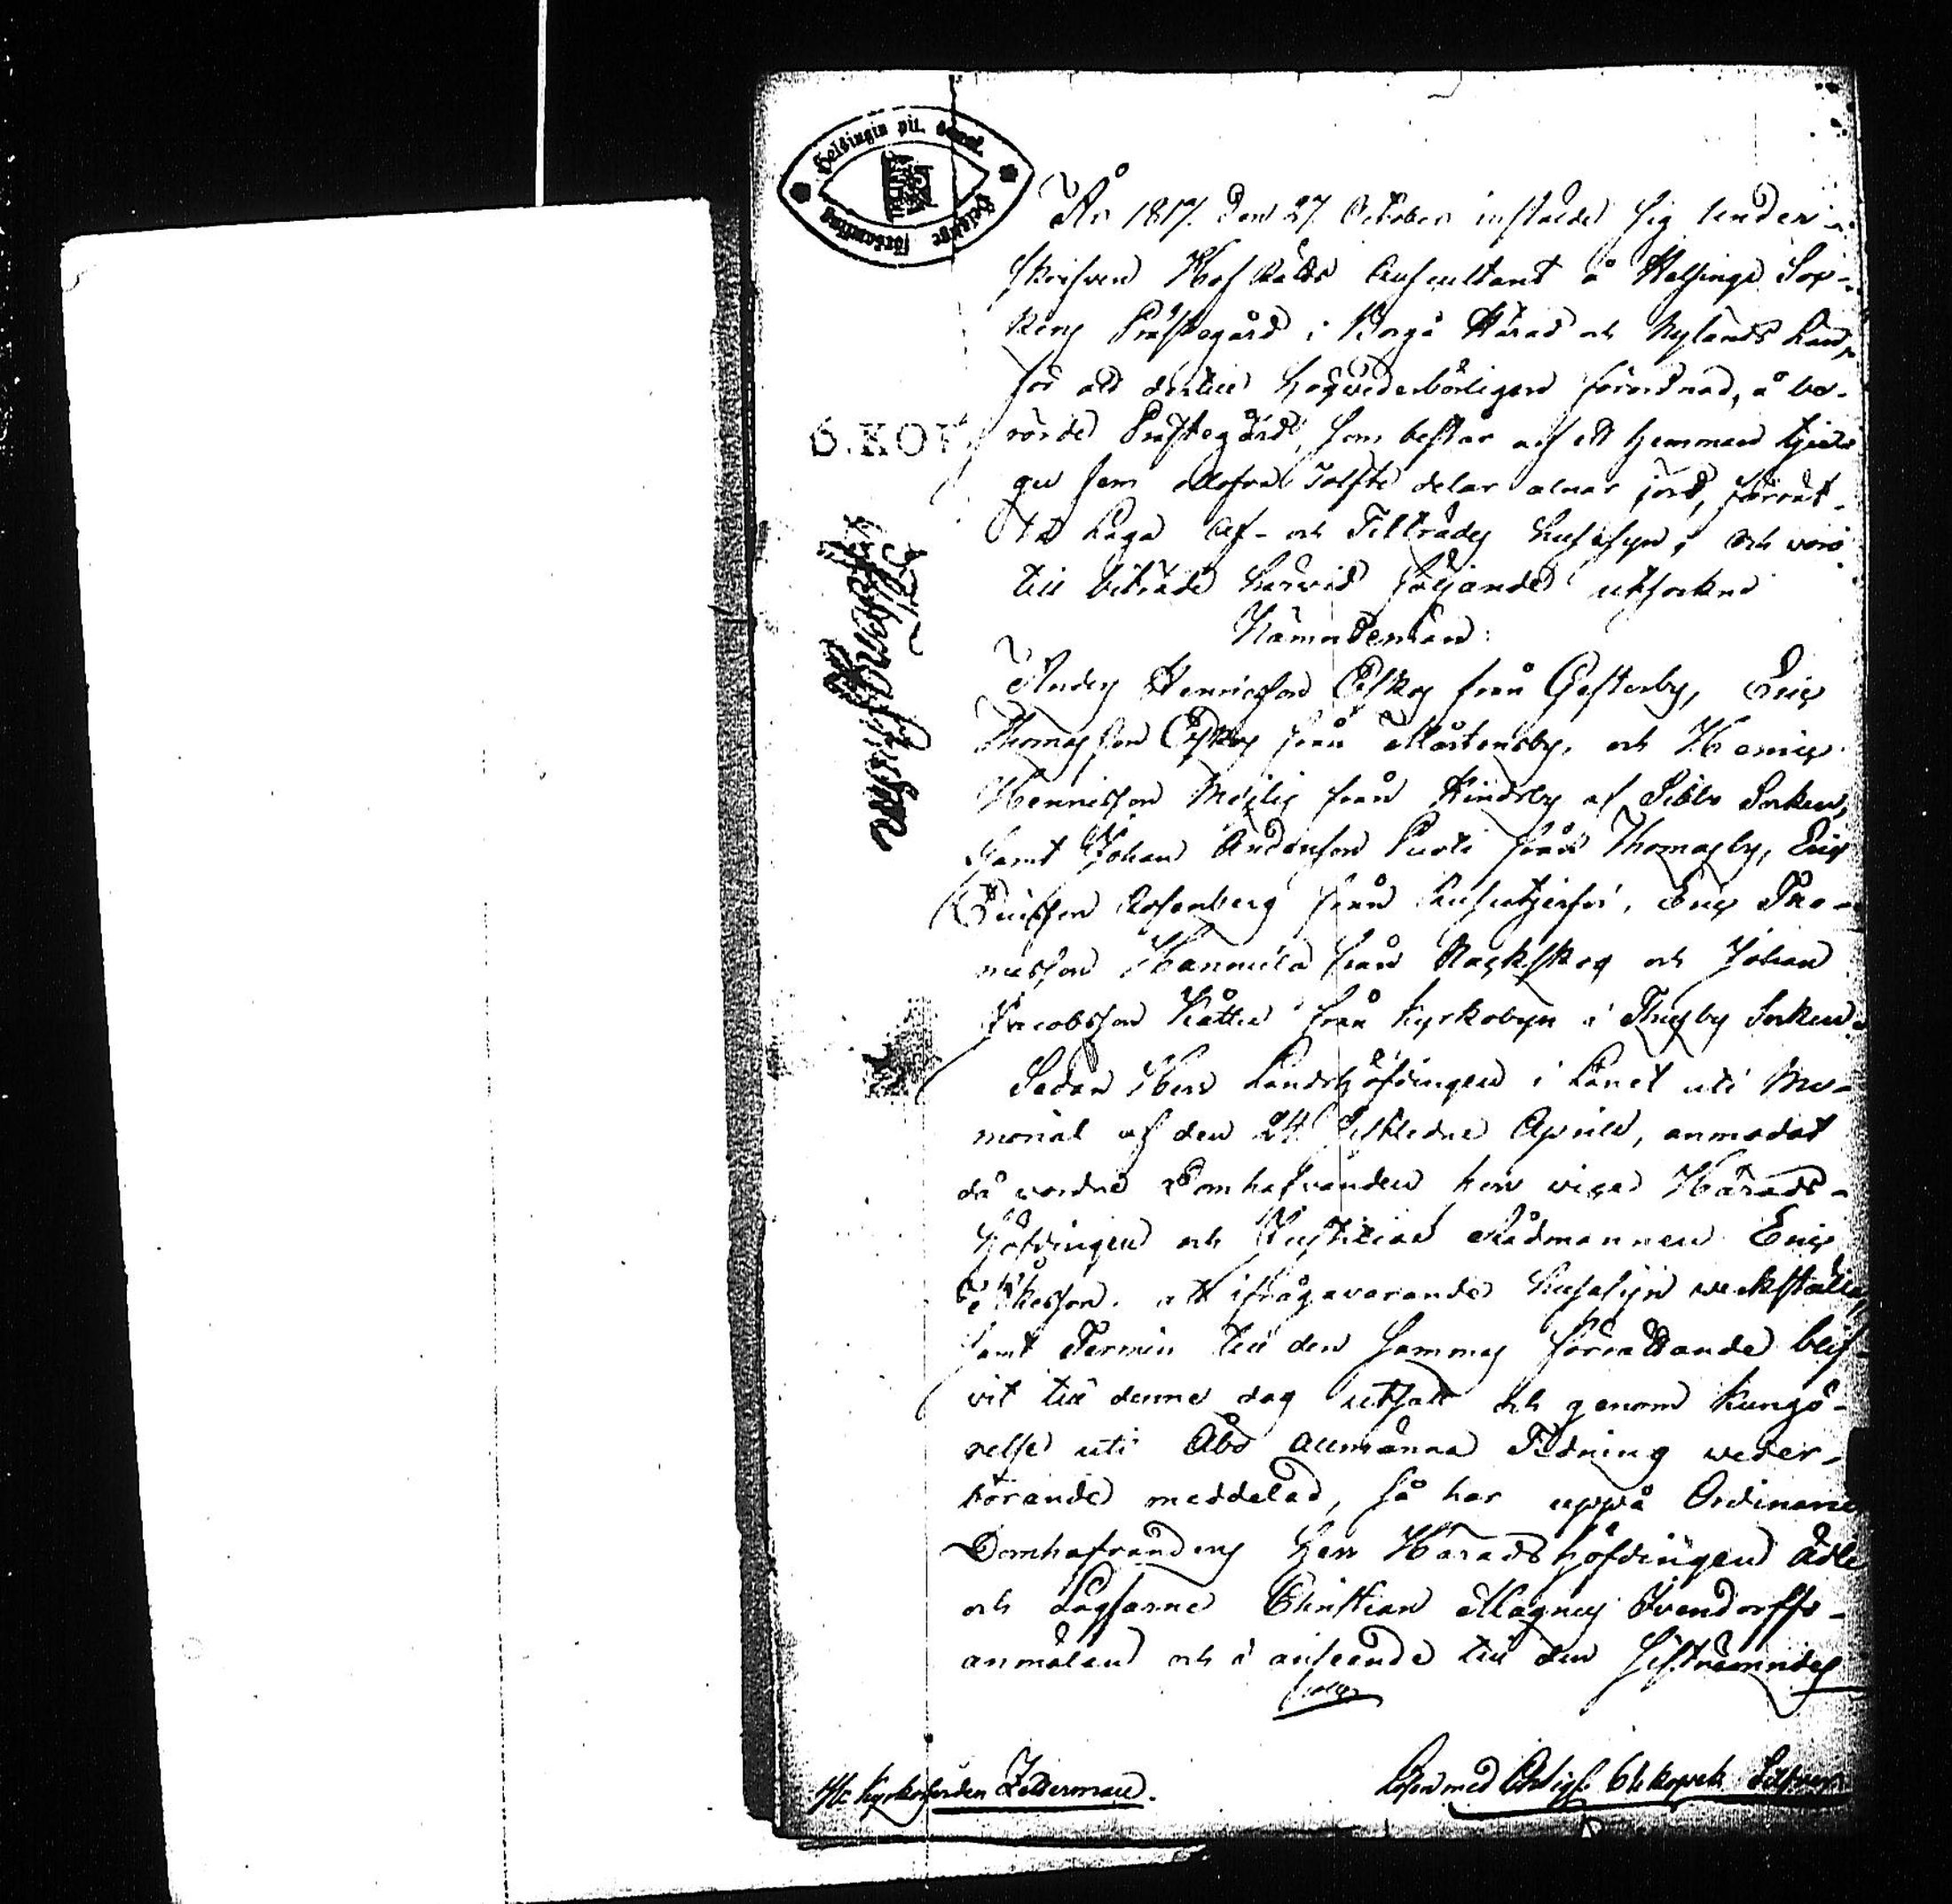 Helsingin pit. seurak.
Helsinge församling
År 1817. den 27 October instälde sig under-
skrifven HofRätts Auscultant å Helsinge Soc-
kens Prästegård i Borgå Härad och Nylands Län,
för att dertill högvederbörligen förordnad, å be-
rörde Prästegård, som består af ett hemman tjug
gu fem tolfte delar alnar jord, förrät-
ta Laga Af- och Tillträdes husesyn; och voro
till biträde härvid följande utsockne
Nämndemän:
6. KOP.
Anders Henricsson Öfskog från Gesterby, Eric
Thomasson från Mårtensby, och Henric
Henricsson från Hindsby af Sibbo Socken,
samt Johan Andersson från Thomasby, Eric
Ericsson Rosenberg från, Eric Tho-
masson från Rackskog och Johan
Jacobsson från Kyrkobyn i Thusby Socken.
Sedan Herr Landshöfdingen i Länet uti Me-
morial af den 24 sistledne Aprill, anmodat
då vordne Domhafvanden herr vice Härads-
höfdingen och Justitiae Rådmannen Eric
Åkesson. att ifrågavarande husesyn werkställa,
samt Termin till den sammas förrättande blif-
vit till denne dag utsatt och genom kungö-
relse uti Åbo Allmänna Tidning weder-
börande meddelad, så har uppå Ordinarie
Domhafvandens herr Häradshöfdingen Ädle
och Lagfarne Christian Magnus Ivendorffs-
anmälan och i anseende till den sistnämndes
H:r Kyrkoherden Zetterman.
Lösen med 6 kopek Silfver